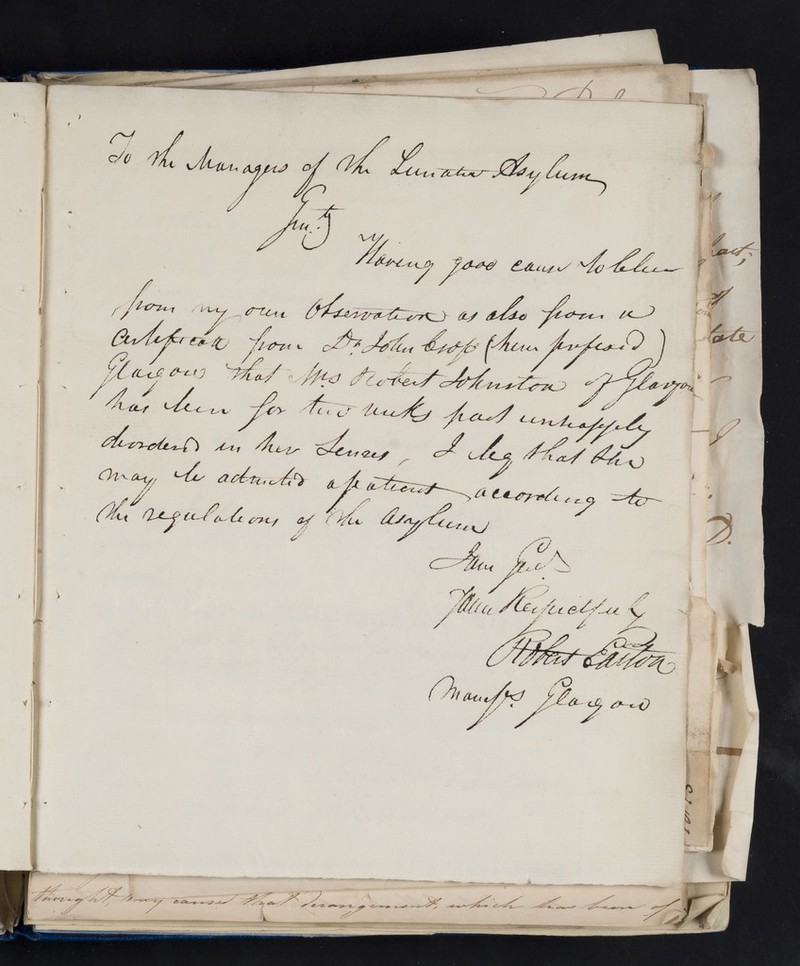 To the Managers of the Lunatic Asylum
Gen.ts
Having good cause to believe
from my own Observation as also from a
Certificate from Dr. John Cross (here prefixed)
Glasgow that Mrs Robert Johnston of Glasgow
has been for two weeks past unhappily
disordered in her Senses, I beg that She
may be admitted a patient according to
the regulations of the Asylum
I am Gen.ts
Your Respectfully
Robert Easton
Glasgow
thought, may caused that derangement, which has been of